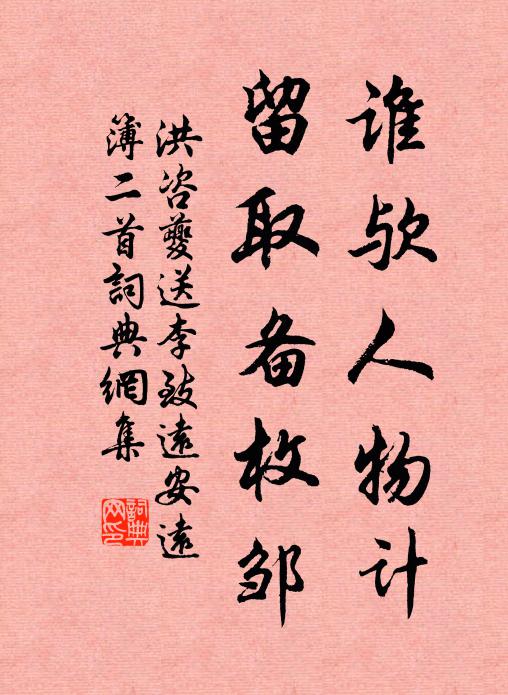 谁欤人物计
留取备枚邹
洪咨夔送李致远安远
簿二首詞典網集
詞典网印